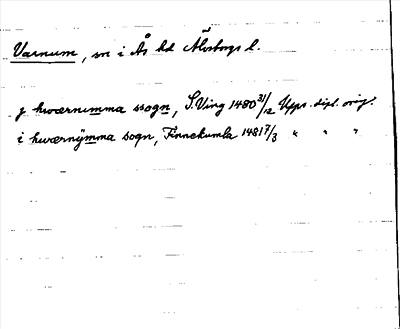 Varnum, sn i Ås hd Älvsborgs l.
j hwærnumma ssogn, S. Ving 1480 31/12 Upps. dipl. orig.
i hwærnymma sogn, Finnekumla 1481 7/3 " " "